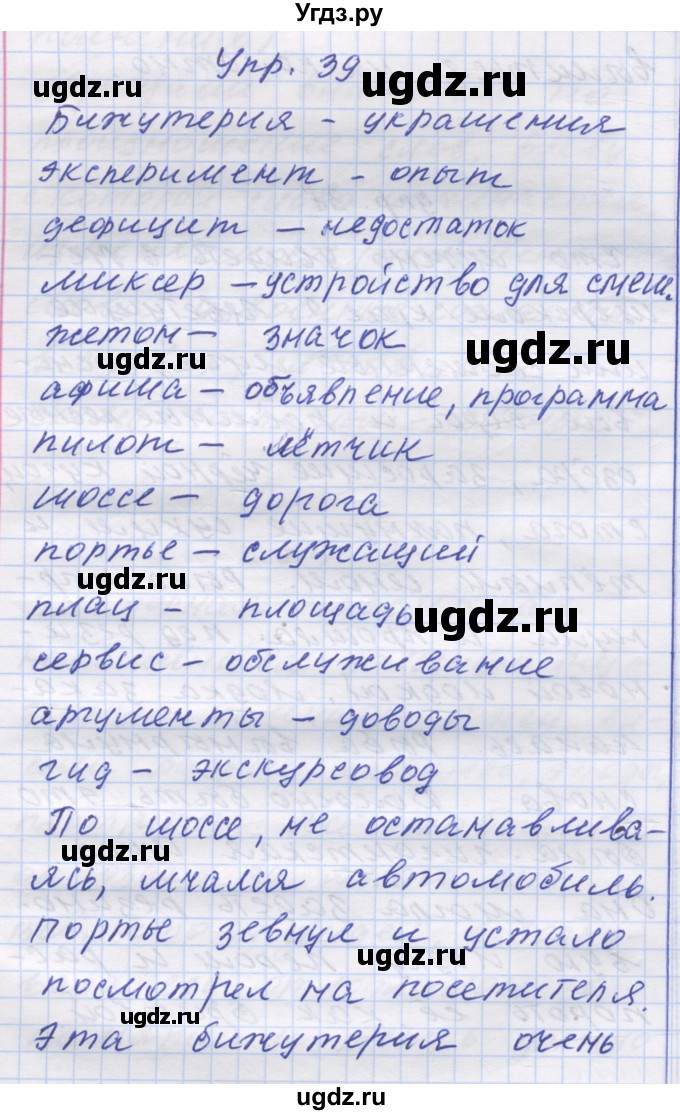 Угдз.ру
Упр. 39
ugdz.ru
ugdz.ru
Бижутерия - украшения
эксперимент - опыт
ugdz.ru
дефицит – недостаток
миксер – устройство для смеш.
жетон – значок
ugdz.ru
ugdz.ru
афиша – объявление, программа
пилот – лётчик
ugdz.ru
шоссе – дорога
портье – служащий
ugdz.ru
плац – площадь
ugdz.ru
сервис – обслуживание
аргументы – доводы
гид – экскурсовод
По шоссе, не останавлива-
ugdz.ru
ясь, мчался автомобиль.
Портье зевнул и устало
ugdz.ru
посмотрел на посетителя.
ugdz.ru
Эта бижутерия очень
ugdz.ru